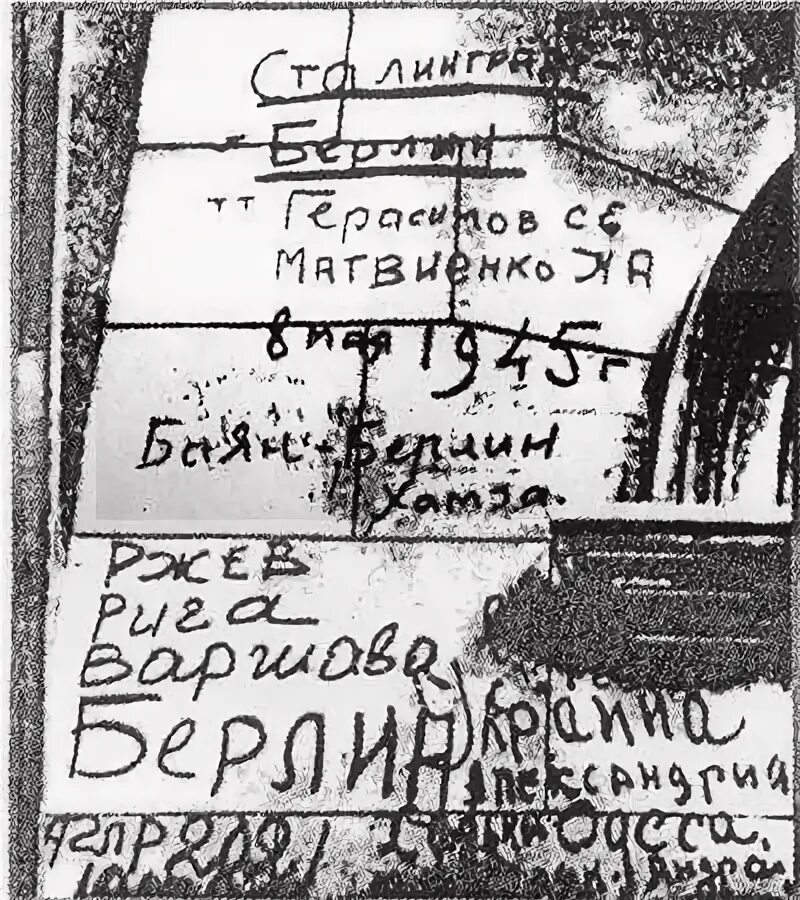 Сталинград -
- Берлин
тт Герасимов СЕ
МАТВИЕНКО
8 мая 1945 г
Баян-Берлин
Хамза.
РЖЕВ
РИГА
Варшава
БЕРЛИН
Украина
Александрия
Одесса.